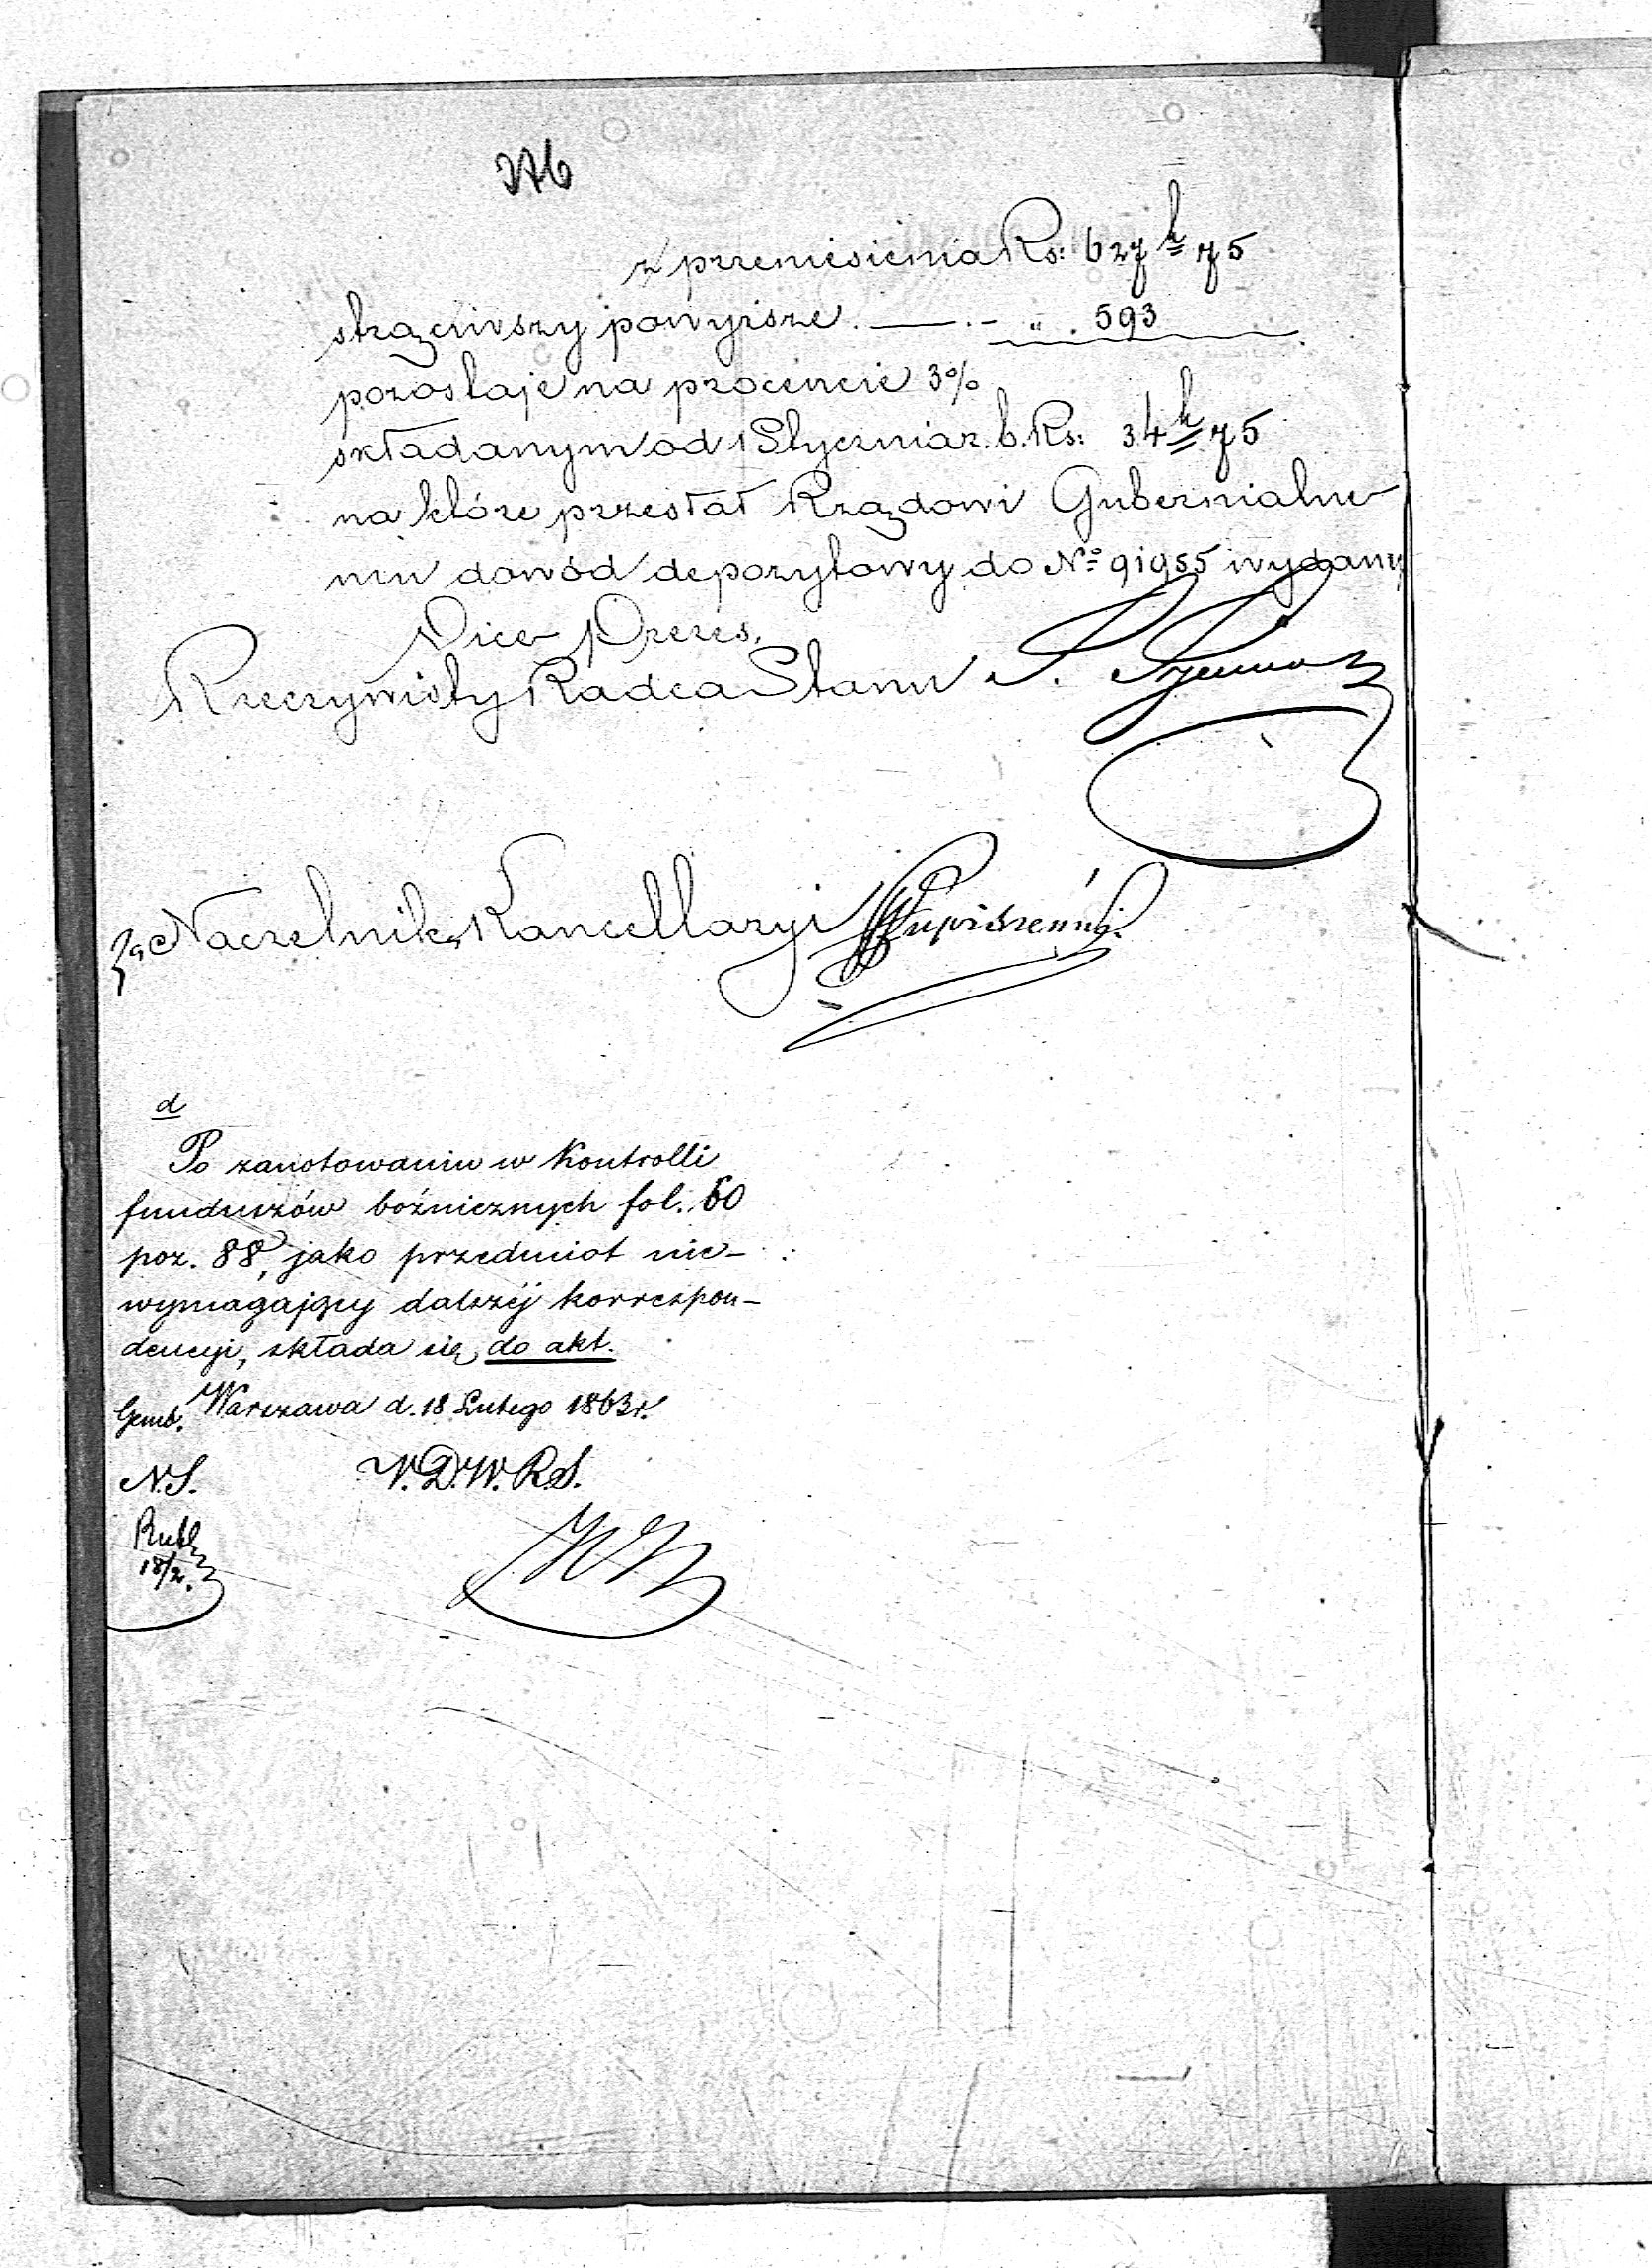 276
z przeniesienia Rs: 627 k 75
strąciwszy powyższe . — . - " . 593
pozostaje na procencie 3%
składanym od 1 Stycznia r. b. Rs: 34 k 75
na które przesłał Rządowi Gubernialne
mu dowód depozytowy do No 91985 wydany
Vice Prezes,
Rzeczywisty Radca Stanu
Za Naczelnika Kancellaryi
d
Po zanotowaniu w Kontrolli
funduszów bóżnicznych fol. 60
poz. 88, jako przedmiot nie-
wymagający dalszéj korrespon-
dencyi, składa się do akt.
Warszawa d. 18 Lutego 1863 r.
Gemb.
N.S. V.D.W.R.S.
18/2.